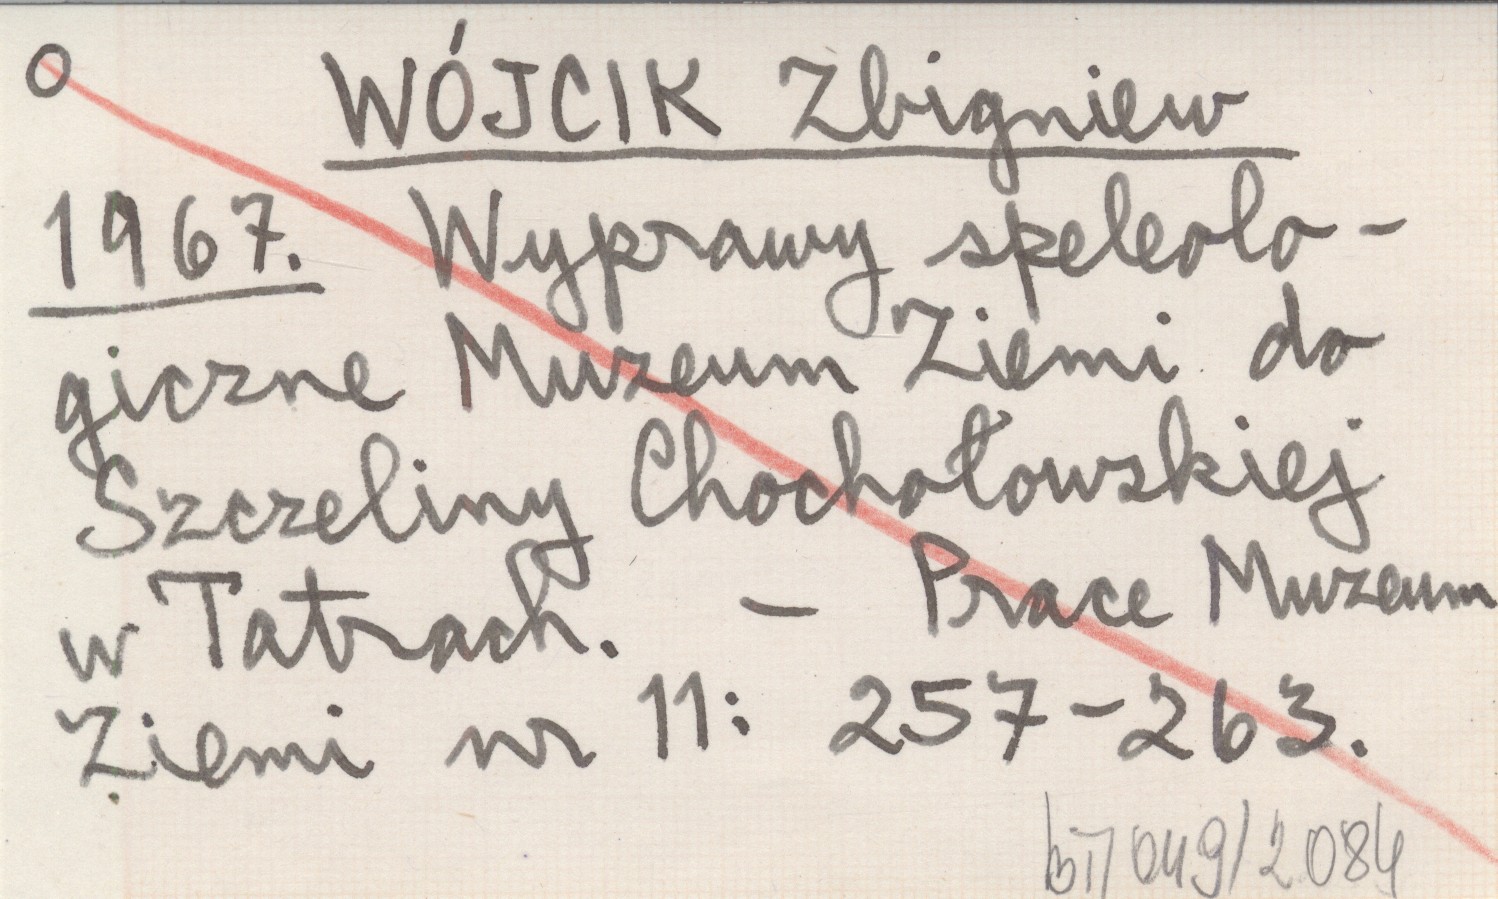 O WÓJCIK Zbigniew
1967. Wyprawy speleolo-
giczne Muzeum Ziemi do
Szczeliny Chochołowskiej
w Tatrach. — Prace Muzeum
Ziemi nr 11: 257-263.
049/2084